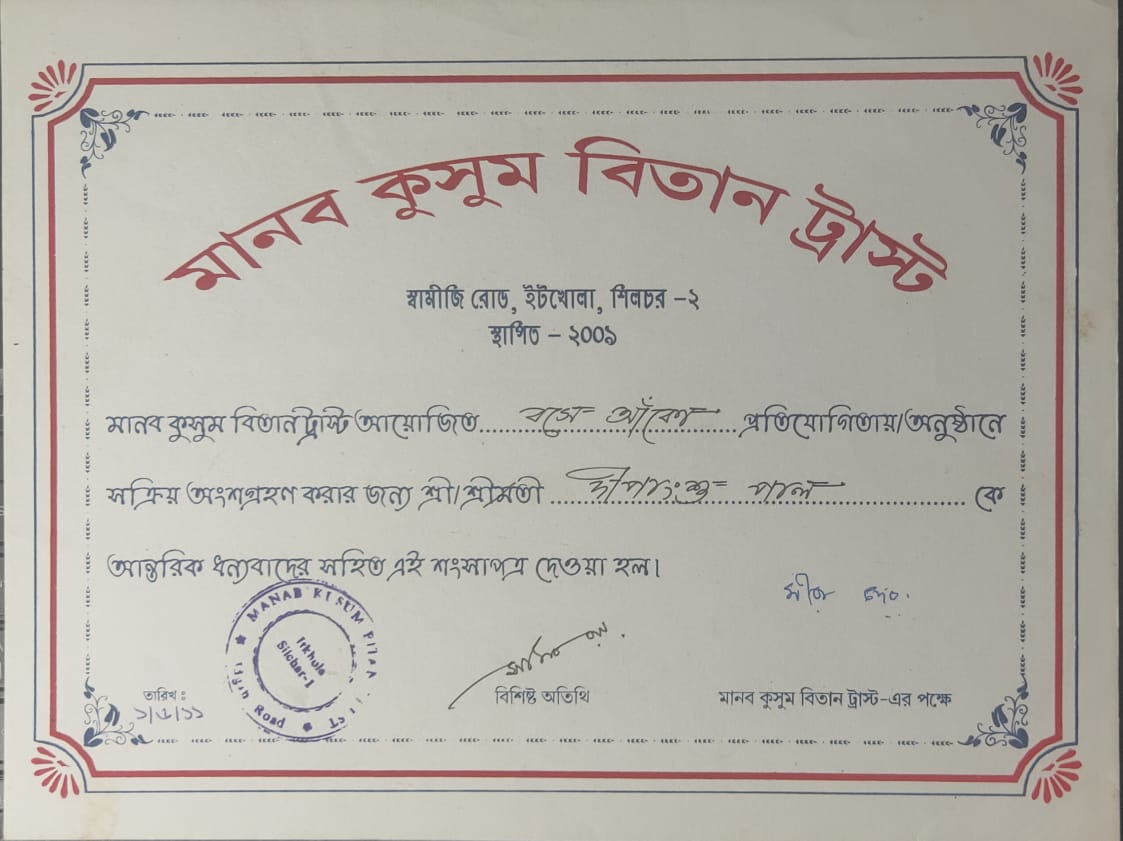 মানব কুসুম বিতান ট্রাস্ট
স্বামীজি রোড, ইটখোলা, শিলচর -২
স্থাপিত - ২০০১
মানব কুসুম বিতান ট্রাস্ট আয়োজিত.....বসে আঁকো.....প্রতিযোগিতায়/অনুষ্ঠানে
সক্রিয় অংশগ্রহণ করার জন্য শ্রী/শ্রীমতী .....দীপাংশু পাল..... কে
আন্তরিক ধন্যবাদের সহিত এই শংসাপত্র দেওয়া হল।
MANAB KUSUM BITAN
Itkhula
Silchar-1
Road
তারিখঃ
বিশিষ্ট অতিথি
মানব কুসুম বিতান ট্রাস্ট-এর পক্ষে